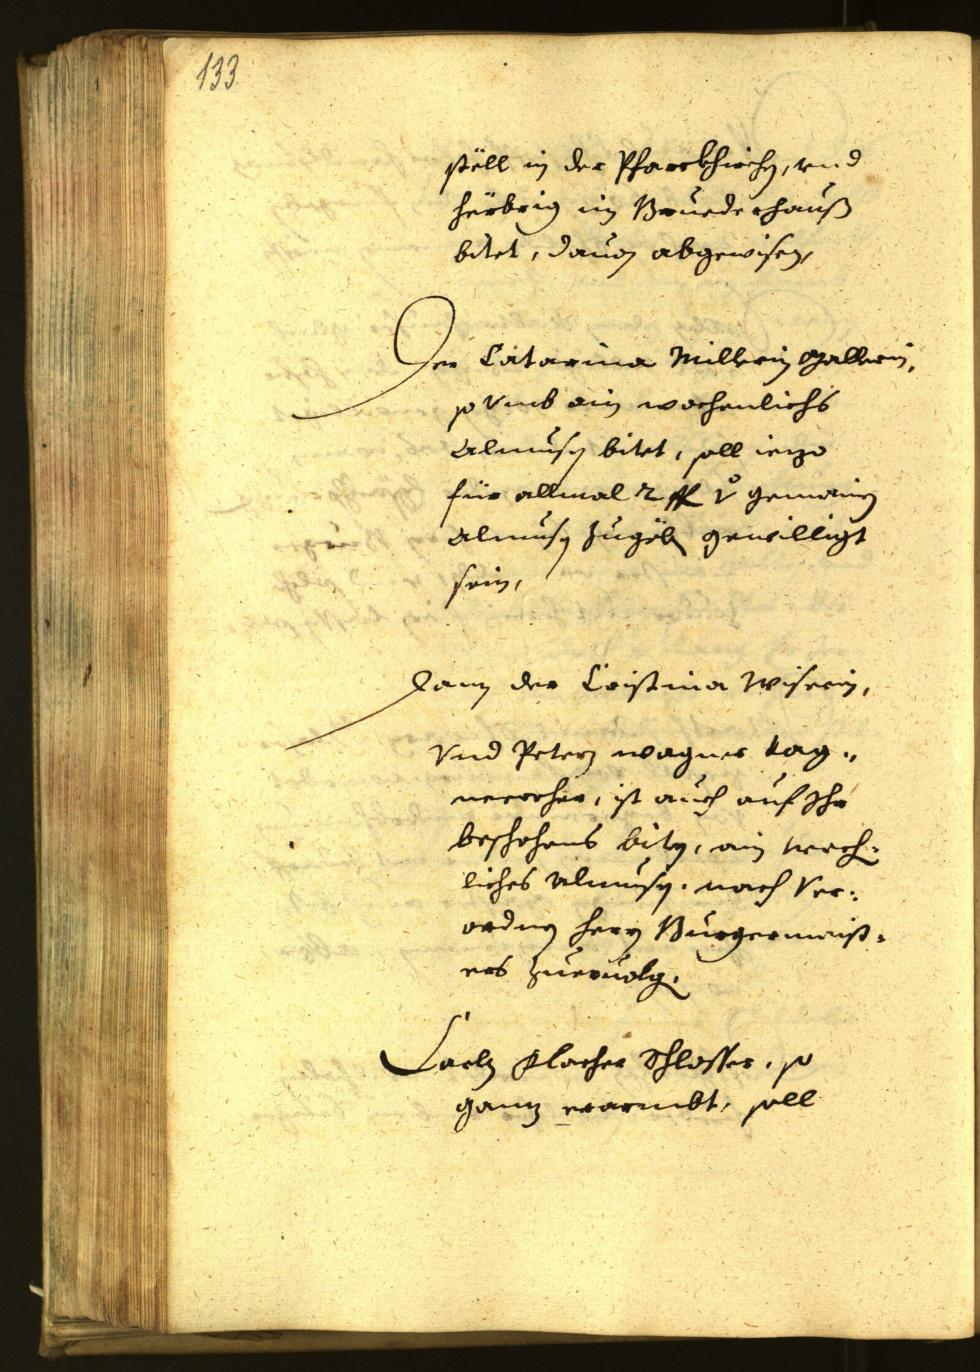 133
stöll in der Pfarrkhirchen, vnd
herbrig im Bruederhauß
bitet, dauon abgewisen,
Der Catarina Millerin
so vmb ain wochenlichs
Almusen bitet, soll iezo
für allmal 2 fl gemainen
Almusen zugeben gewilligt
sein,
Dann der Cristina Wiserin,
Vnd Petern Wagner tag„
wercher, ist auch auf Ihr
beschehens biten, ain
liches Almusen. nach Ver:
ordnung herrn Burgermaist„
ers zueruolg.
Carln Placher Schlosser, so
ganz erarmbt, soll